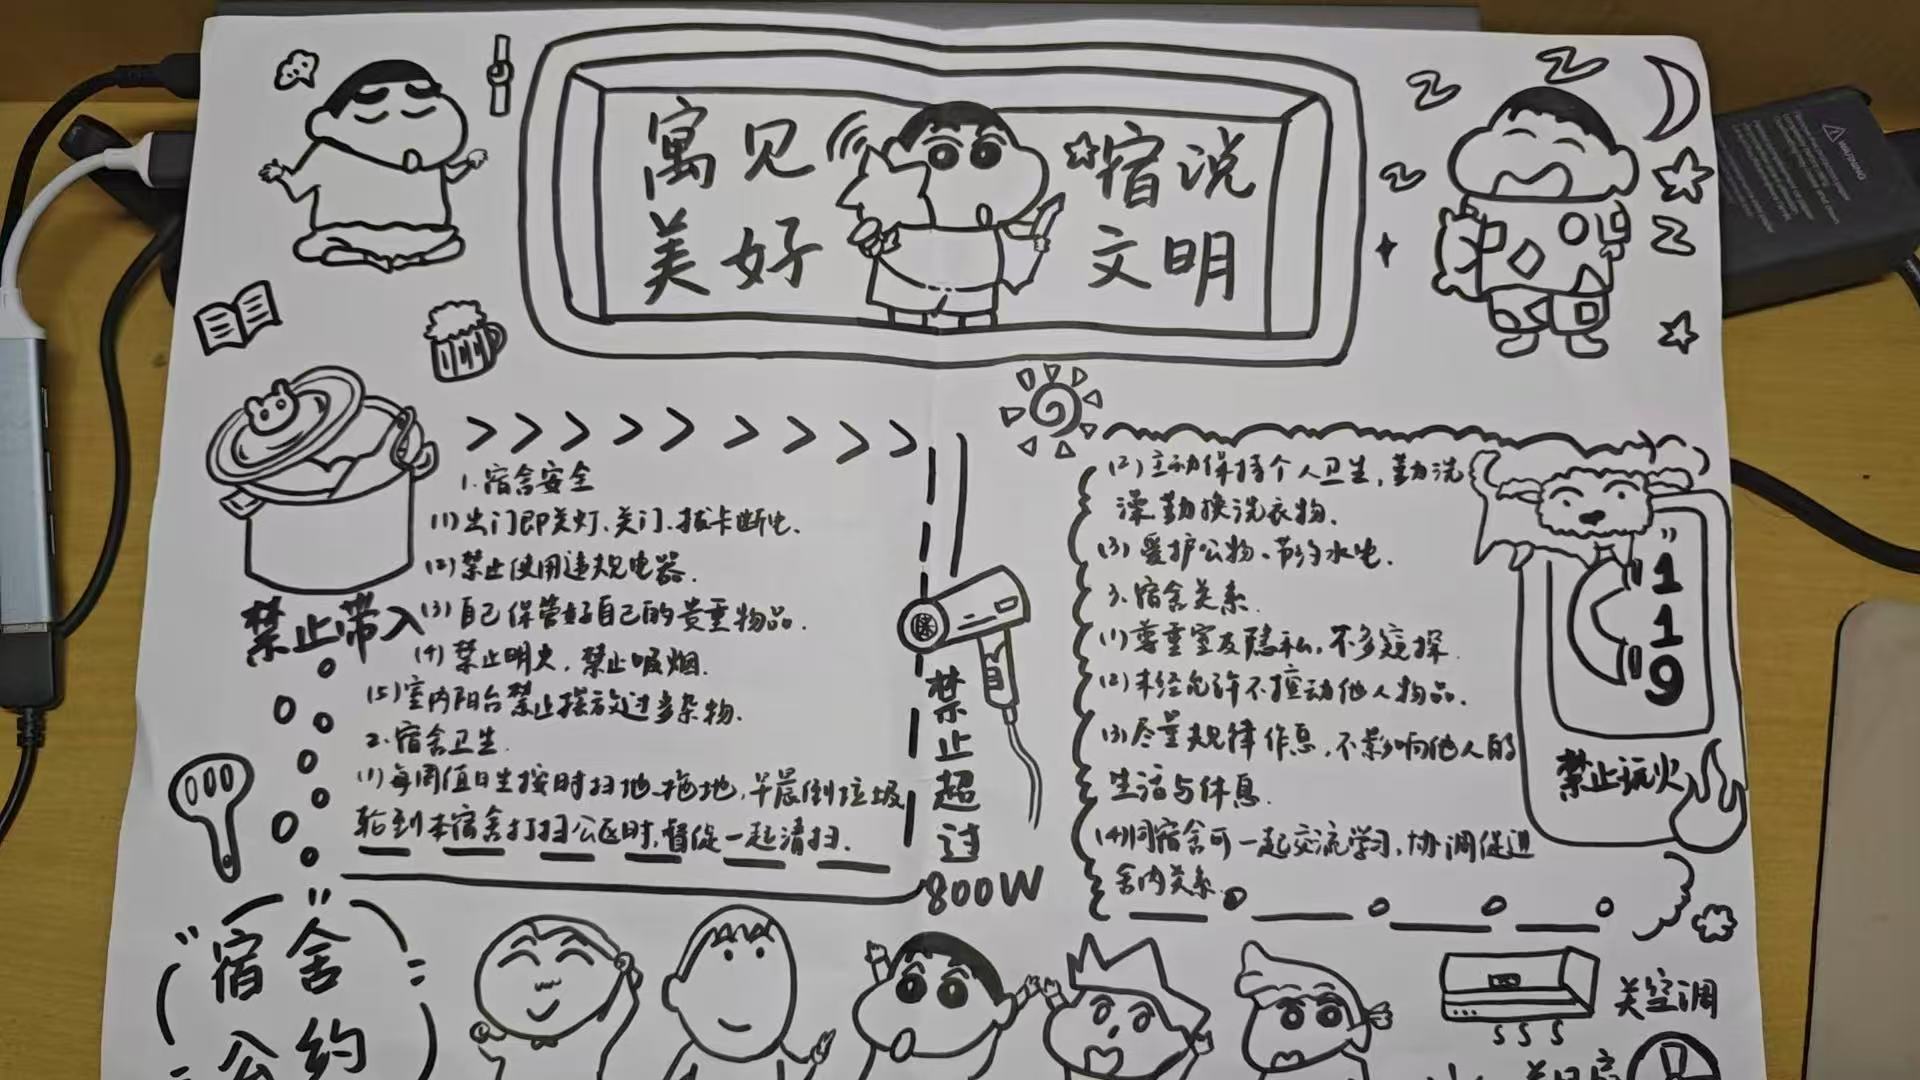 寓见 宿说
美好 文明
1.宿舍安全
(1)出门即关灯、关门、拔卡断电.
(2)禁止使用违规电器.
(3)自己保管好自己的贵重物品.
(4)禁止明火,禁止吸烟.
(5)室内阳台禁止摆放过多杂物.
2.宿舍卫生.
(1)每周值日生按时扫地、拖地,早晨倒垃圾
轮到本宿舍打扫公区时,督促一起清扫.
禁止带入
禁止超过
800W
(2)主动保持个人卫生,勤洗
澡勤换洗衣物.
(3)爱护公物、节约水电.
3.宿舍关系.
(1)尊重室友隐私,不多窥探.
(2)未经允许不擅动他人物品.
(3)尽量规律作息,不影响他人的
生活与休息.
(4)同宿舍可一起交流学习,协调促进
舍内关系.
119
禁止玩火
宿舍
公约
关空调
WARNING